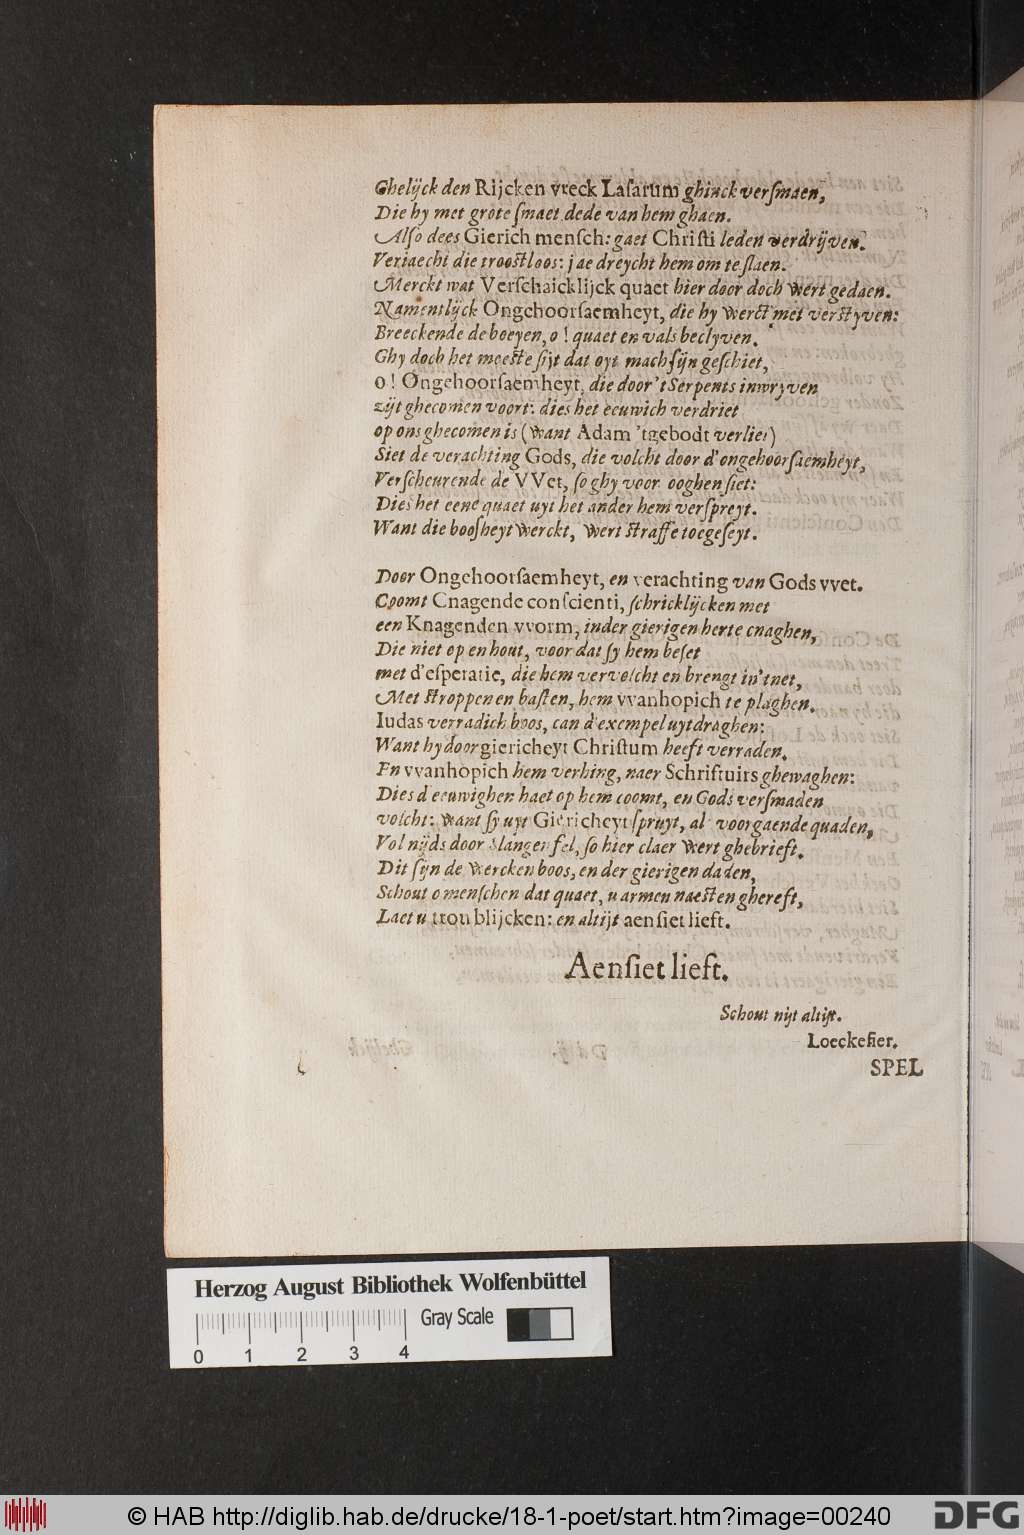 Ghelijck den Rijcken vreck Lasarum ghinck versmaen,
Die hy met grote smaet dede van hem ghaen.
Also dees Gierich mensch: gaet Christi leden verdrijven.
Veriaecht die troostloos: jae dreycht hem om te slaen.
Merckt wat Verschaicklijck quaet hier door doch wert gedaen.
Namentlijck Ongehoorsaemheyt, die hy werct met verstyven:
Breeckende de boeyen, o! quaet en vals beclyven.
Ghy doch het meeste sijt dat oyt mach sijn geschiet,
o! Ongehoorsaemheyt, die door 't Serpents inwryven
zijt ghecomen voort: dies het eeuwich verdriet
op ons ghecomen is (want Adam 'tgebodt verliet)
Siet de verachting Gods, die volcht door d'ongehoorsaemheyt,
Verscheurende de VVet, so ghy voor ooghen siet:
Dies het eene quaet uyt het ander hem verspreyt.
Want die boosheyt werckt, wert straffe toegeseyt.
Door Ongehoorsaemheyt, en verachting van Gods vvet.
Coomt Cnagende conscienti, schricklijcken met
een Knagenden vvorm, inder gierigen herte cnaghen,
Die niet op en hout, voor dat sy hem beset
met d'esperatie, die hem vervolcht en brengt in'tnet,
Met stroppen en basten, hem vvanhopich te plaghen.
Iudas verradich boos, can d'exempel uytdraghen:
Want hy door giericheyt Christum heeft verraden.
En vvanhopich hem verhing, naer Schriftuirs ghewaghen:
Dies d'eeuwighen haet op hem coomt, en Gods versmaden
volcht: want sy uyt Giericheyt spruyt, al voorgaende quaden,
Vol nijds door slangen fel, so hier claer wert ghebrieft.
Dit sijn de wercken boos, en der gierigen daden,
Schout o menschen dat quaet, u armen naesten ghereft,
Laet u trou blijcken: en altijt aensiet lieft.
Aensiet lieft.
Schout nijt altijt.
Loeckefier.
SPEL
Herzog August Bibliothek Wolfenbüttel
Gray Scale
0 1 2 3 4
© HAB http://diglib.hab.de/drucke/18-1-poet/start.htm?image=00240
DFG